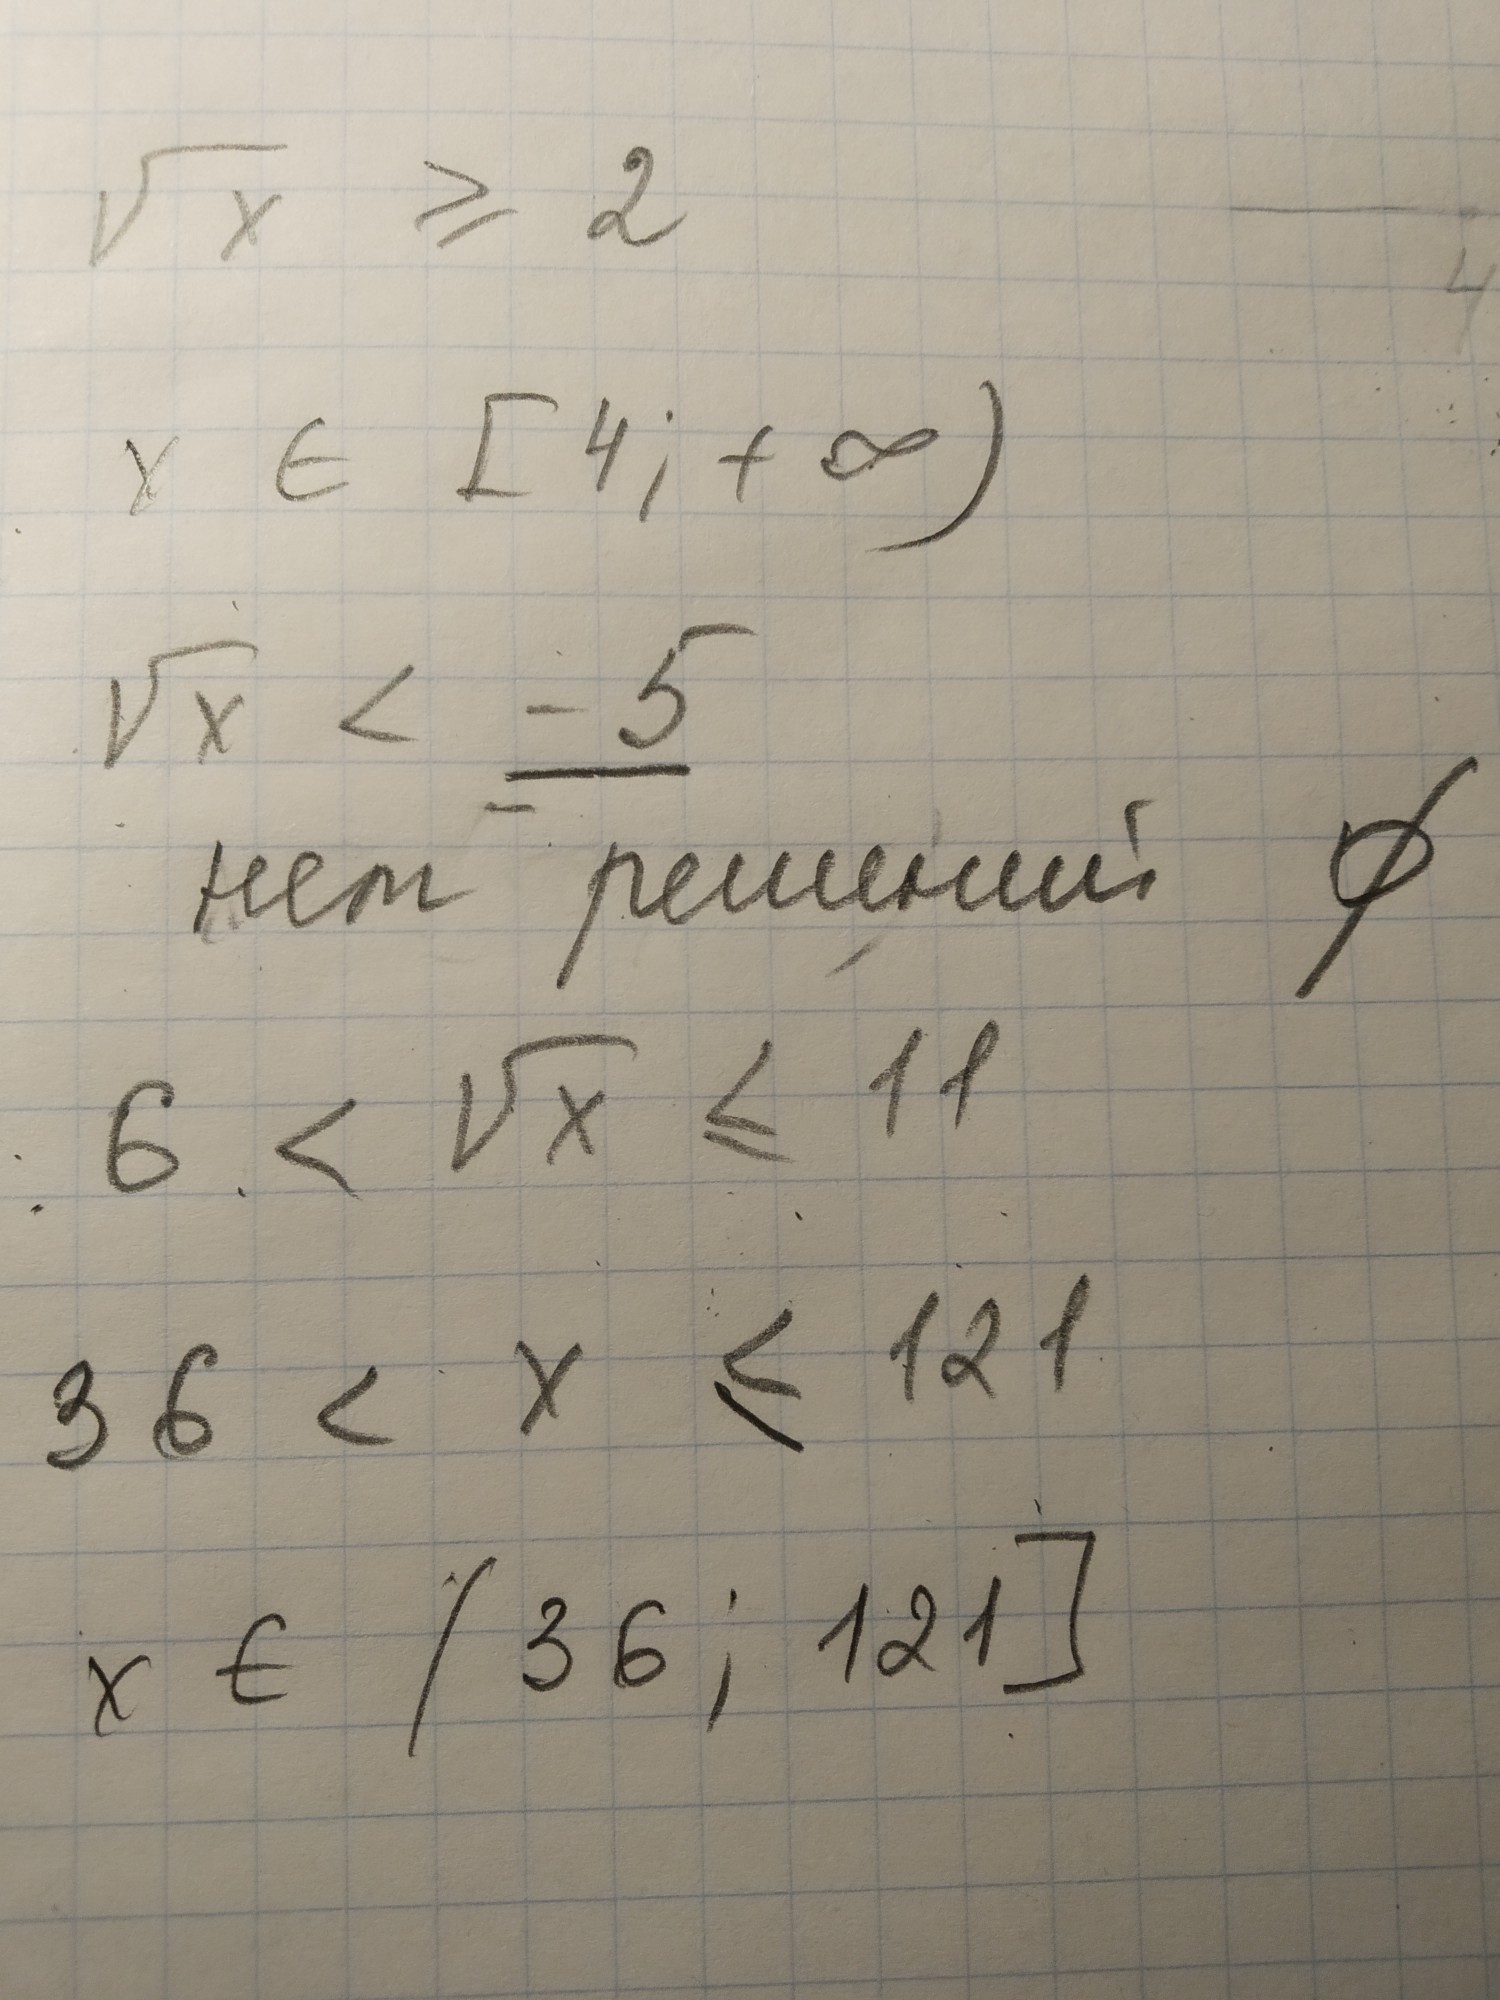 √x ≥ 2
4
x ∈ [4; +∞)
√x < -5
нет решений ∅
6 < √x ≤ 11
36 < x ≤ 121
x ∈ (36; 121]